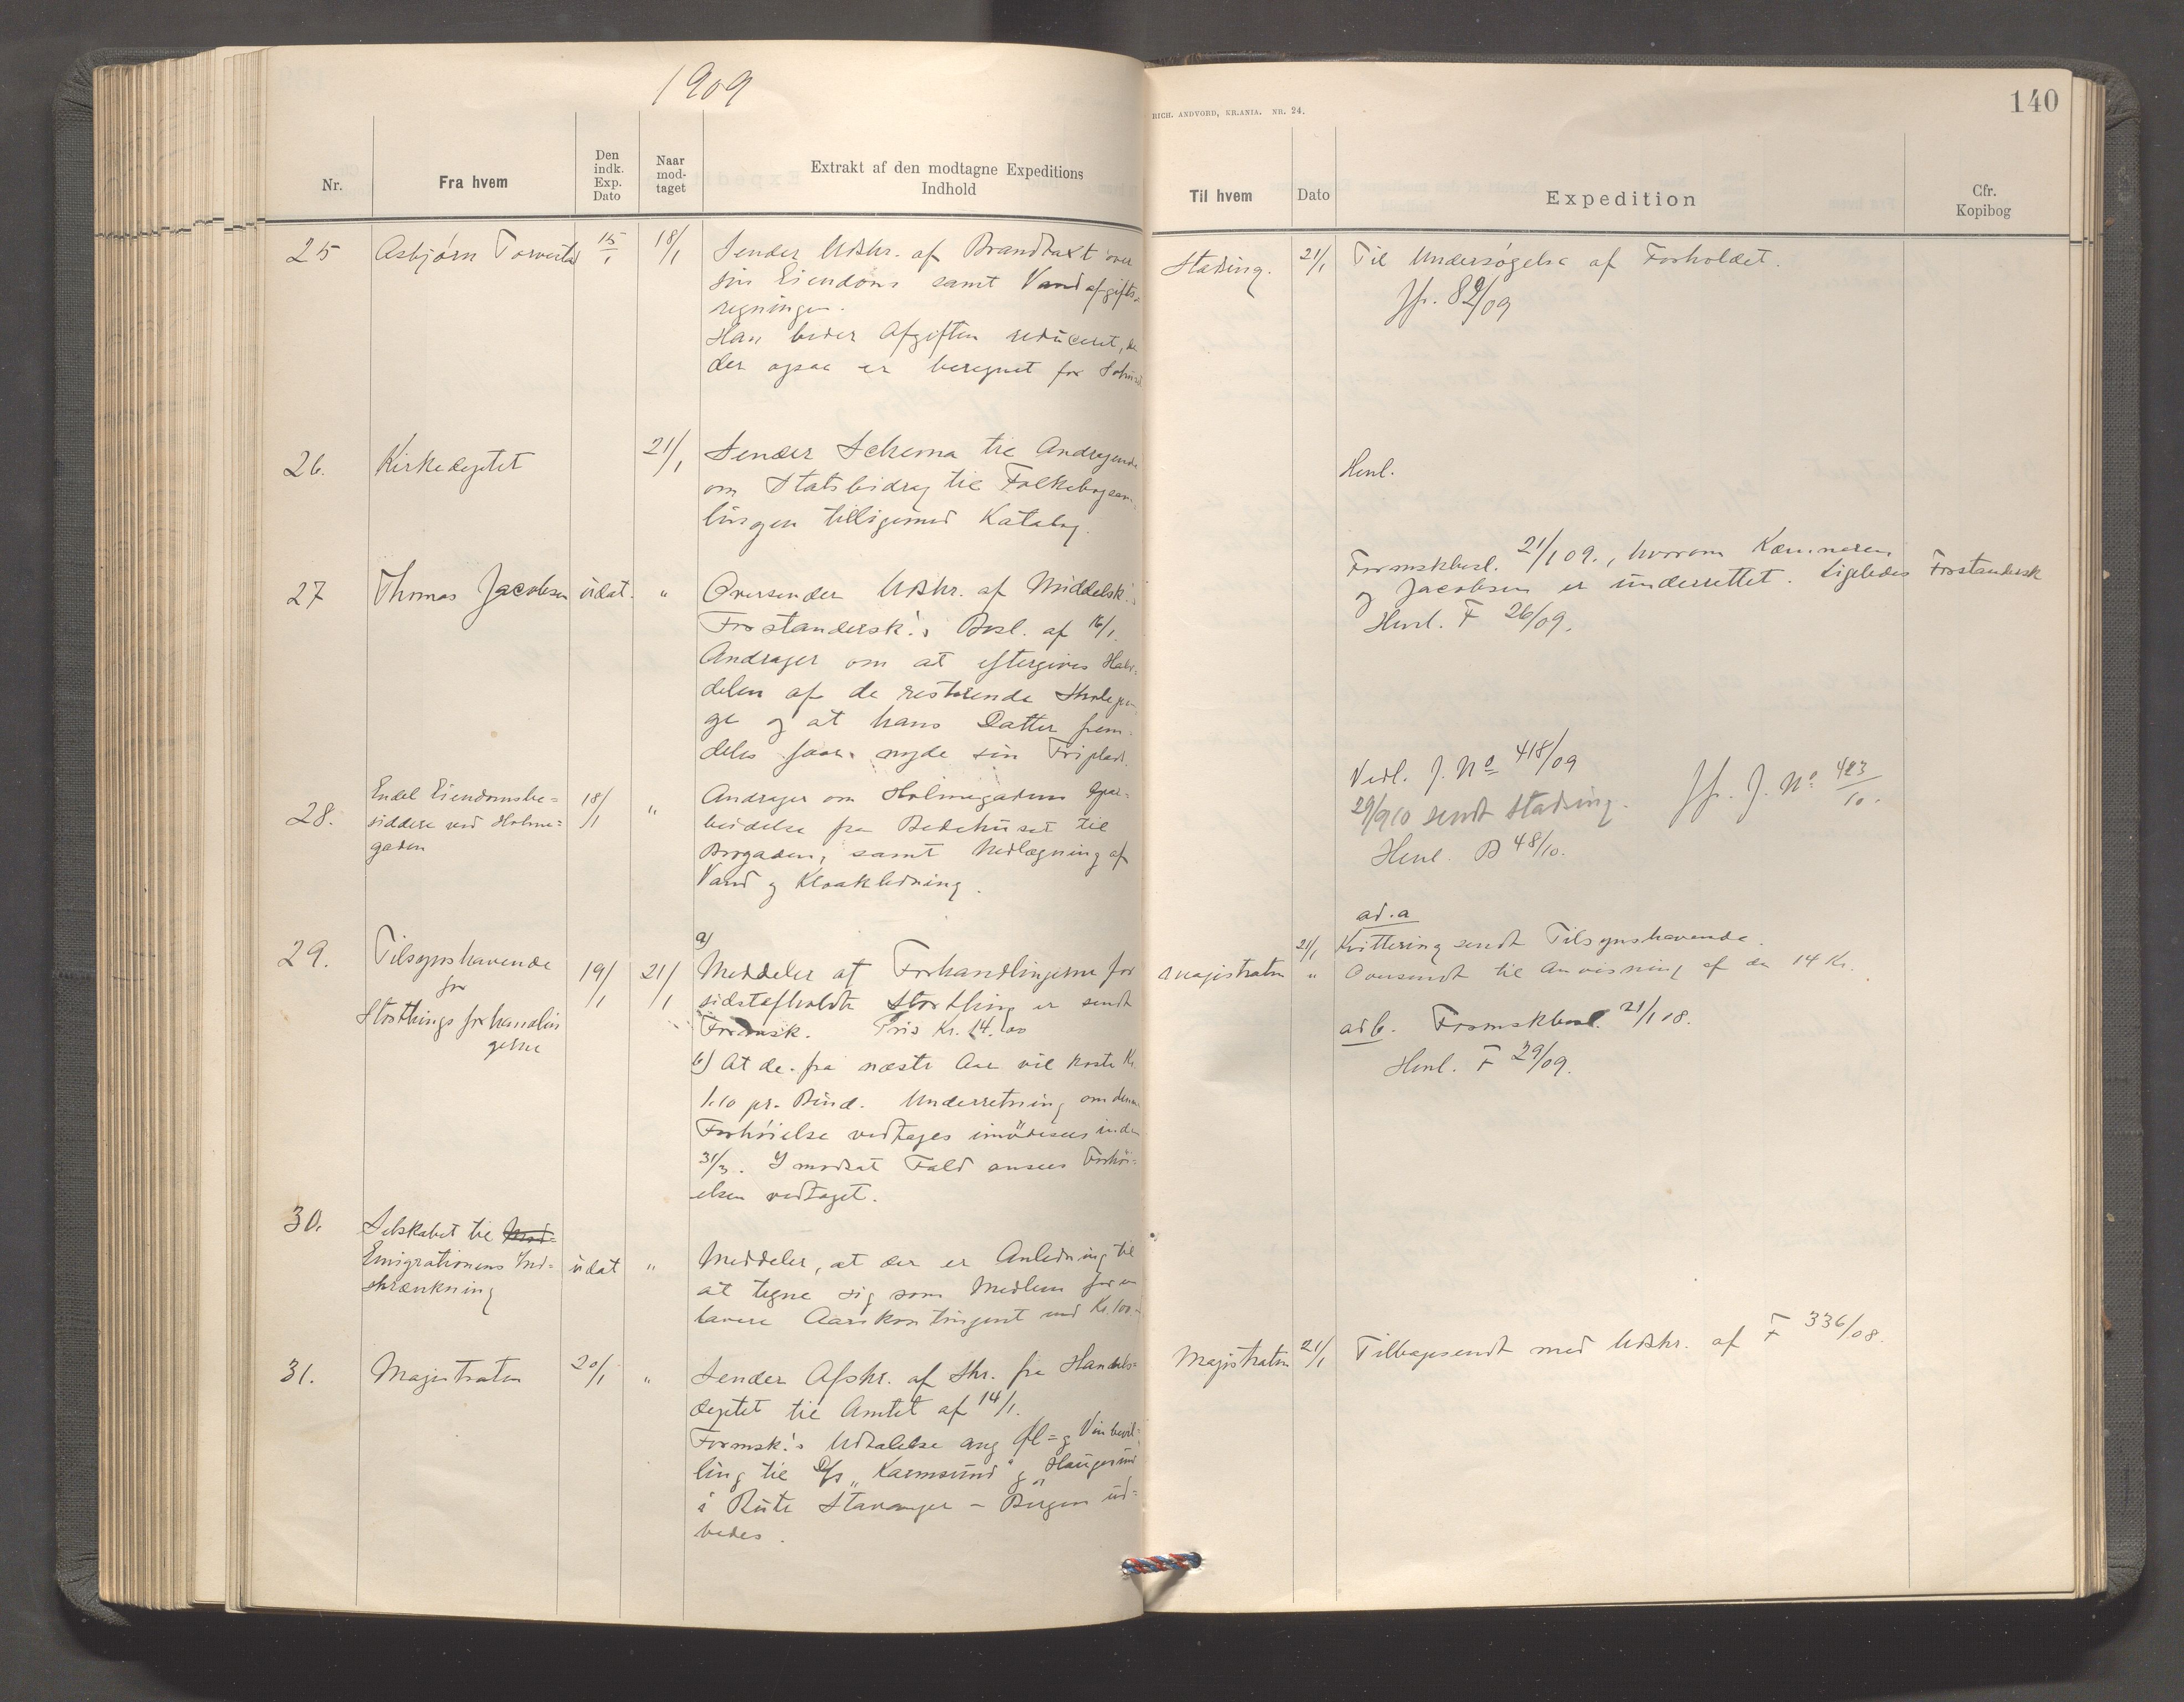 1909
Nr.
Fra hvem
Den
indk.
Exp.
Dato
Naar
mod-
taget
Extrakt af den modtagne Expeditions
Indhold
25
Asbjørn Torvestad
15/1
18/1
Sender Udskr. af Brandtaxt over
sin Eiendom samt Vandafgifts-
regningen.
Han beder Afgiften reduceret, da
der ogsaa er beregnet for
26.
Kirkedeptet
21/1
Sender Schema til Andragende
om Statsbidrag til Folkebogsam-
lingen tilligemed Katalog.
27
Thomas Jacobsen
udat.
"
Oversender Udskr. af Middelsk.'s
Forstandersk.'s Besl. af 16/1.
Andrager om at eftergives Halv-
delen af de resterende Skolepen-
ge og at hans Datter frem-
deles faar nyde sin Friplads.
28.
Endel Eiendomsbe=
siddere ved Holme=
gaden
18/1
"
Andrager om Holmegadens Opar-
beidelse fra Bedehuset til
Brogaden, samt Nedlægning af
Vand og Kloakledning.
29.
Tilsynshavende
for
Storthingsforhandlin
gerne
19/1
21/1
a)
Meddeler at Forhandlingerne for
sidstafholdte Storthing er sendt
Formsk. Pris Kr. 14.00
b) At de fra næste Aar vil koste Kr.
1.10 pr. Bind. Underretning om denne
Forhøielse vedtages imødesees inden
31/3. I modsat Fald ansees Forhøi=
elsen vedtaget.
30.
Selskabet til
Emigrationens Ind=
skrænkning
udat
"
Meddeler, at der er Anledning til
at tegne sig som Medlem for en
lavere Aarskontingent end Kr. 100.-
31.
Magistraten
20/1
"
Sender Afskr. af Skr. fra Handels=
deptet til Amtet af 14/1.
Formsk.'s Udtalelse ang Øl= og Vinbevil=
ling til D/S "Karmsund" og "Haugesund"
i Rute Stavanger - Bergen ud=
bedes.
RICH. ANDVORD, KR.ANIA. NR. 24.
140
Til hvem
Dato
Expedition
Cfr.
Kopibog
Stadsing.
21/1
Til Undersøgelse af Forholdet.
Jfr. 89/09
Henl.
Formskbesl. 21/1 09., hvorom Kæmneren
og Jacobsen er underrettet. Ligeledes Forstandersk
Henl. F 26/09.
Vedl. J. No 418/09
29/9 10 sendt Stadsing.
Jfr. J. No. 423/10.
Henl. B 48/10.
ad. a
21/1
Kvittering sendt Tilsynshavende.
Magistraten
"
Oversendt til Anvisning af de 14 Kr.
ad b. Formskbesl. 21/1 08.
Henl. F 29/09.
Magistraten
21/1
Tilbagesendt med Udskr. af F 336/08.